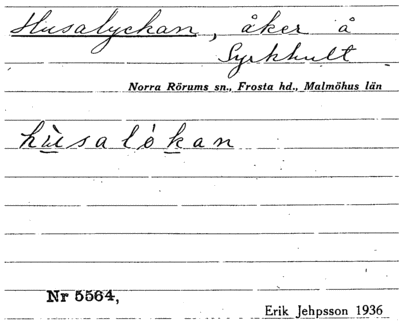 Husalyckan, åker å
Syrkhult
Norra Rörums sn., Frosta hd., Malmöhus län
hùsalókan
Nr 5564,
Erik Jehpsson 1936